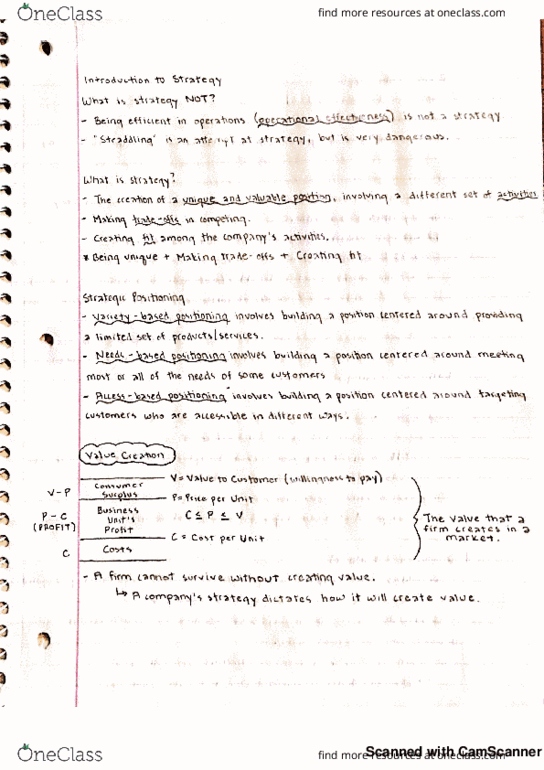 OneClass
find more resources at oneclass.com
Introduction to Strategy
What is strategy NOT?
- Being efficient in operations (operational effectiveness) is not a strategy
- "Straddling" is an attempt at strategy, but is very dangerous.
What is strategy?
- The creation of a unique and valuable position, involving a different set of activities
- Making trade-offs in competing.
- Creating fit among the company's activities.
* Being unique + Making trade-offs + Creating fit
Strategic Positioning
- Variety-based positioning involves building a position centered around providing
a limited set of products/services.
- Needs-based positioning involves building a position centered around meeting
most or all of the needs of some customers
- Access-based positioning involves building a position centered around targeting
customers who are accessible in different ways.
Value Creation
V = Value to Customer (willingness to pay)
V-P
Consumer
Surplus
P = Price per Unit
P-C
(PROFIT)
Business
Unit's
Profit
C ≤ P ≤ V
C = Cost per Unit
C
Costs
The value that a
firm creates in a
market.
- A firm cannot survive without creating value.
↳ A company's strategy dictates how it will create value.
OneClass
find more resources at oneclass.com
Scanned with CamScanner